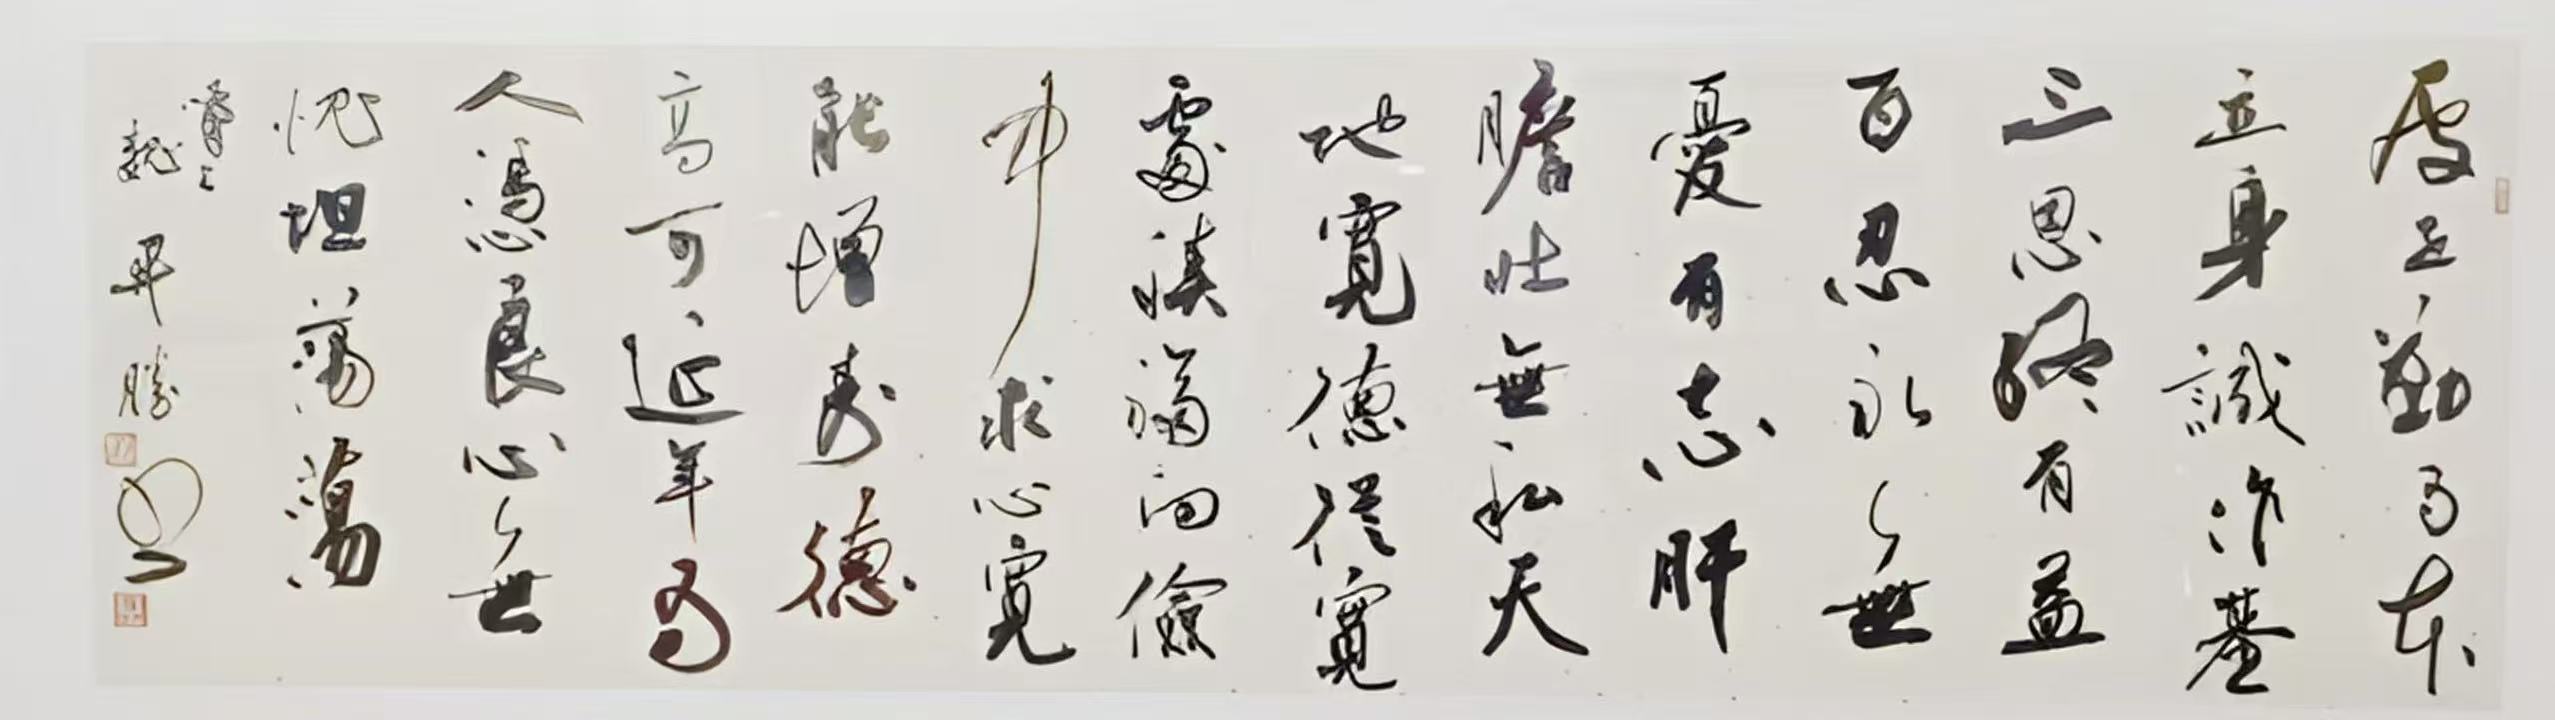 處世勤為本
立身誠作基
三思終有益
百忍永無
憂有志肝
膽壯無私天
地寬德從寬
處積福向儉
中求心寬
能增壽德
高可延年為
人憑良心無
愧坦蕩蕩
魏
畢勝書